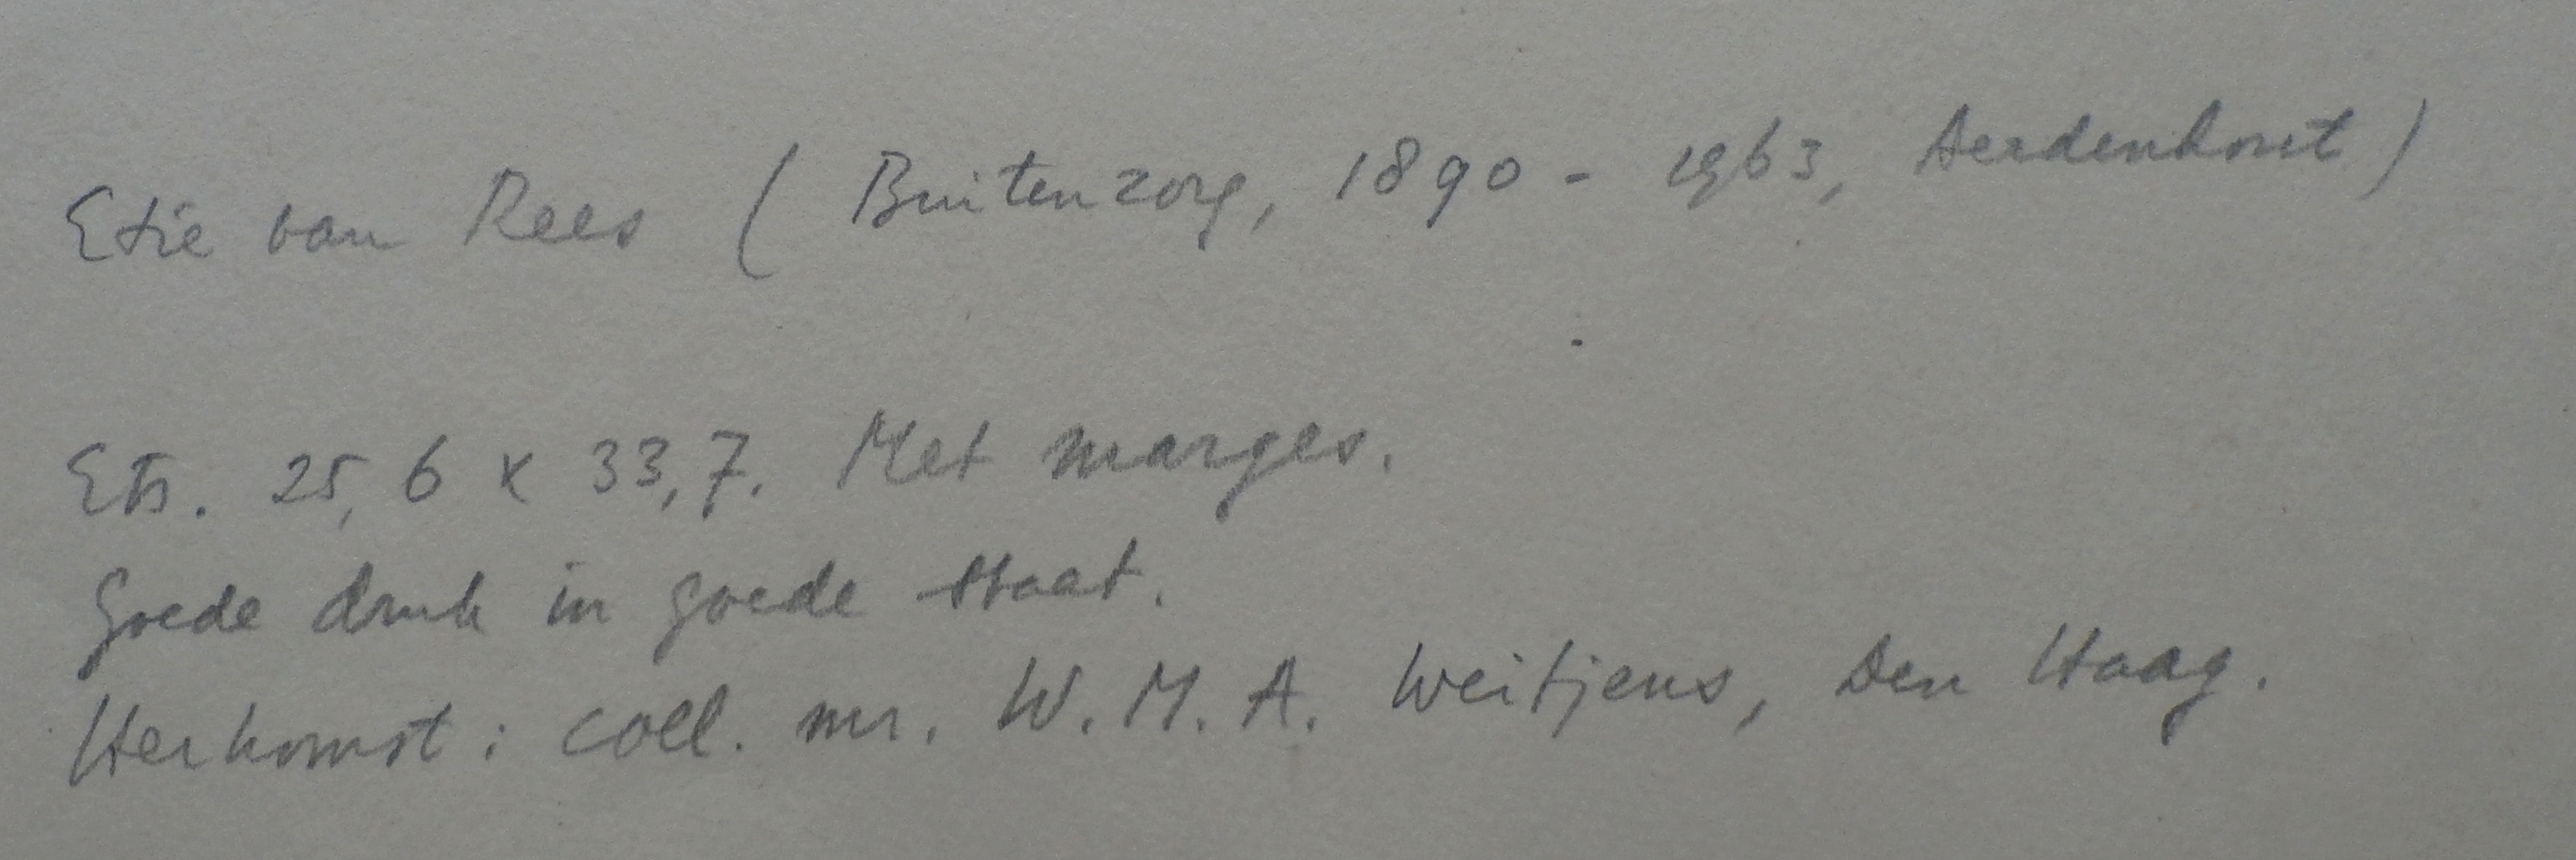 Etie van Rees ( Buitenzorg, 1890 - 1963, Aerdenhout )
Ets. 25,6 x 33,7. Met marges.
Goede druk in goede staat.
Herkomst: coll. mr. W. M. A. Weitjens, Den Haag.